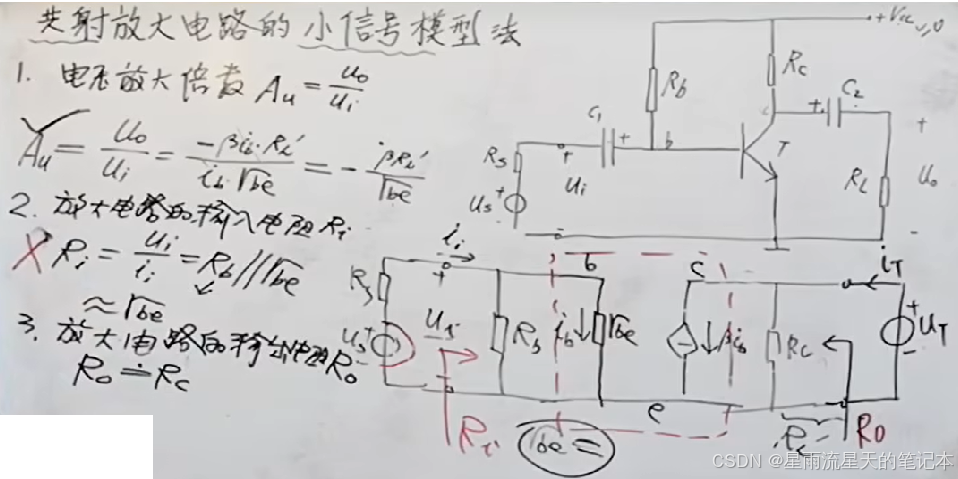 共射放大电路的小信号模型法
1. 电压放大倍数 Au = uo/ui
Au = uo/ui = -βib·RL′/ib·rbe = - βRL′/rbe
2. 放大电路的输入电阻Ri
X Ri = ui/ii = Rb//rbe
≈ rbe
3. 放大电路的输出电阻Ro
Ro ≐ Rc
+Vcc
Rb
Rc
C1
+
b
c
T
+
C2
Rs
us
+
+
ui
-
RL
+
uo
-
ii
Rs
us
+
-
+
Ri
b
ib
rbe
c
βib
e
Rc
iT
+
uT
-
Ro
rbe =
CSDN @星雨流星天的笔记本